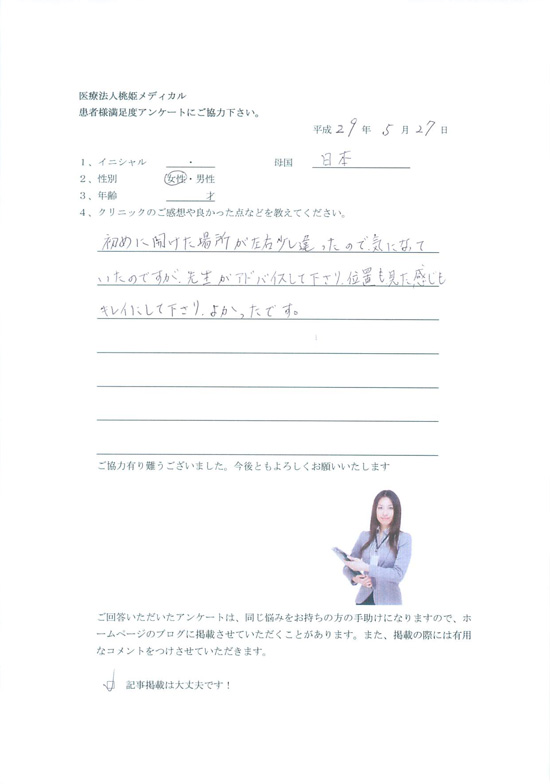 医療法人桃姫メディカル
患者様満足度アンケートにご協力下さい。
平成 29 年 5 月 27 日
1、イニシャル ・ 母国 日本
2、性別 女性・男性
3、年齢 才
4、クリニックのご感想や良かった点などを教えてください。
初めに開けた場所が左右少し違ったので、気になって
いたのですが、先生がアドバイスして下さり、位置も見た感じも
キレイにして下さり、よかったです。
ご協力有り難うございました。今後ともよろしくお願いいたします
ご回答いただいたアンケートは、同じ悩みをお持ちの方の手助けになりますので、ホ
ームページのブログに掲載させていただくことがあります。また、掲載の際には有用
なコメントをつけさせていただきます。
記事掲載は大丈夫です！